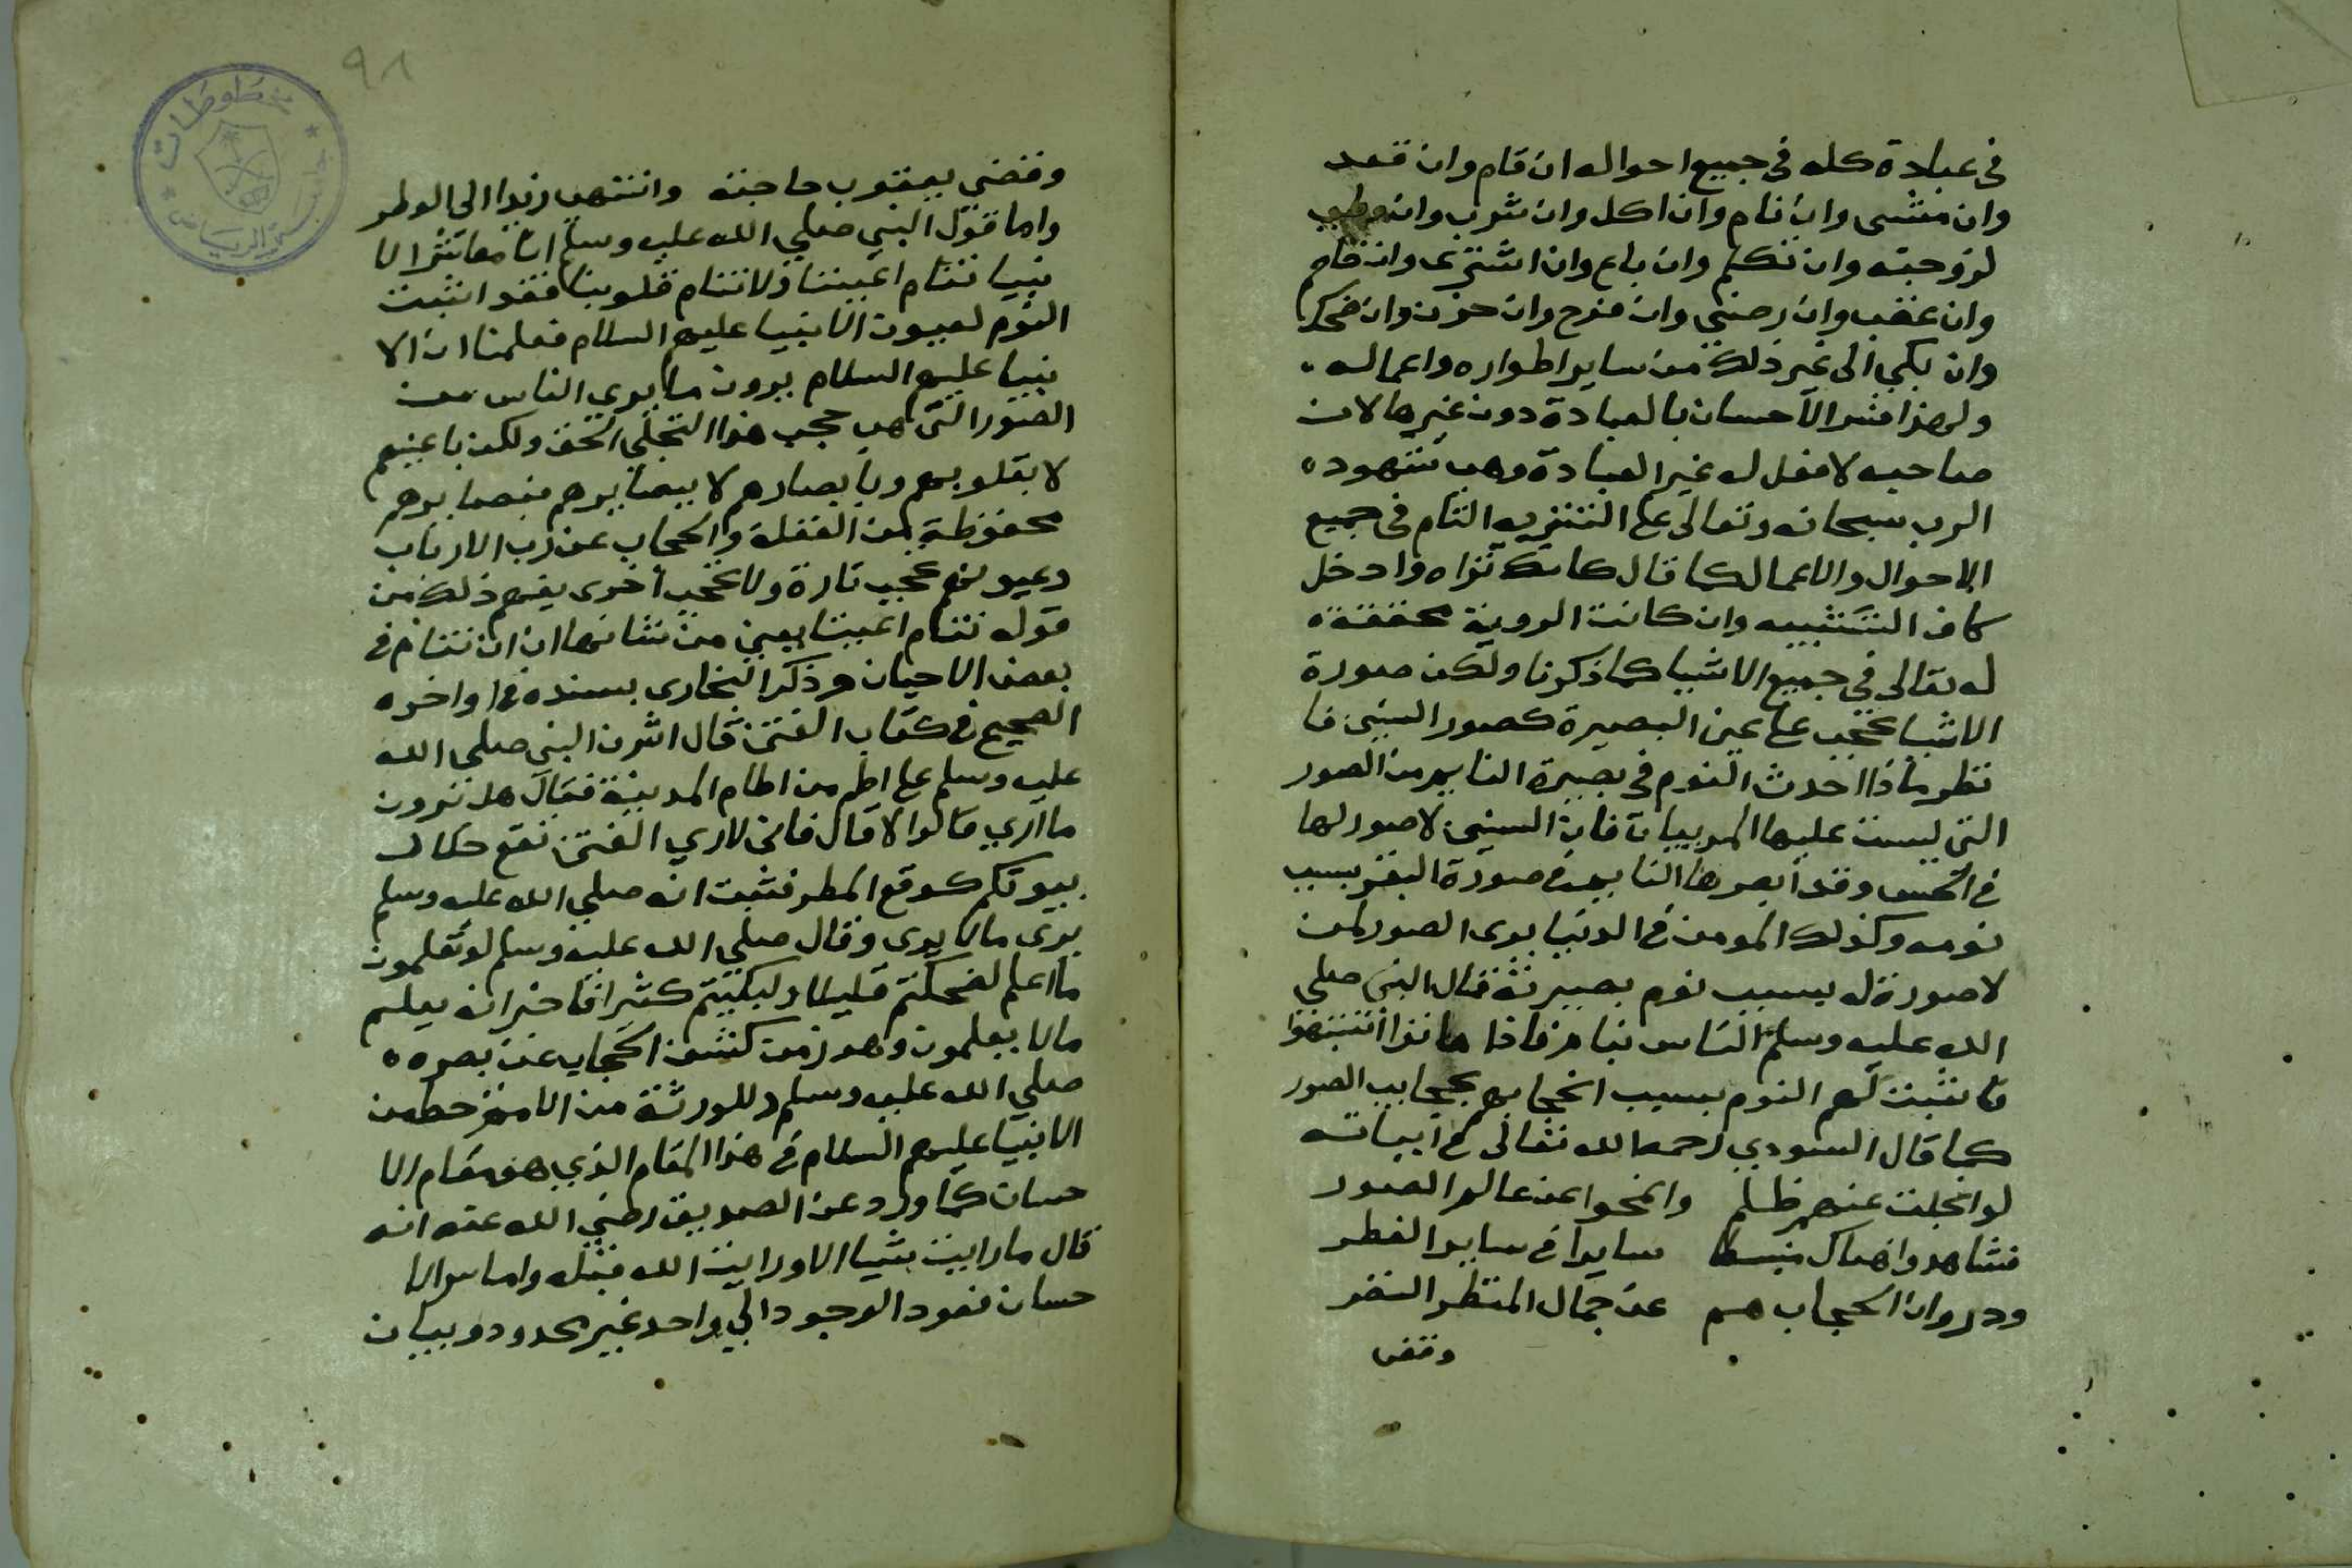 في عبادة كله في جميع احواله ان قام وان قعد
وان مشى وان نام وان اكل وان شرب وان
لزوجته وان تكلم وان باع وان اشترى وان قام
وان غضب وان رضي وان فرح وان حزن وان ضحك
وان بكي الى غير ذلك من ساير اطواره واعماله
ولهذا فسر الاحسان بالعبادة دون غيرها لان
صاحبه لا فعل له غير العبادة وهي شهوده
الرب سبحانه وتعالى على التنزيه التام في جميع
الاحوال والاعمال كما قال كانك تراه وادخل
كاف التشبيه وان كانت الروية محققة
له تعالى في جميع الاشيا كما ذكرنا ولكن صورة
الاشيا تحجب على عين البصيرة كصور السنين فا
نظر ماذا احدث النوم في بصيرة النايم من الصور
التي ليست عليها المرييات فان السنين لا صور لها
في الحس وقد ابصرها النايم في صورة البقر بسبب
نومه وكذلك المومن في الدنيا يرى الصور لمن
لا صورة له بسبب نوم بصيرته قال النبي صلي
الله عليه وسلم الناس نيام فاذا ماتوا انتبهوا
فاثبت لهم النوم بسبب انحجابهم بحجايب الصور
كما قال السودي رحمه الله تعالى في ابياته
لو انجلت عنهم ظلم وانمحوا عن عالم الصور
فشاهدوا هناك سايرا في ساير الفطر
ودروا ان الحجاب هم عن جمال المنظر النضر
وقضى
٩٨
مخطوطات
وقضي يعقوب حاجته وانتهى زيد الى الوطر
واما قول النبي صلي الله عليه وسلم انا معاشر الا
نبيا تنام اعيننا ولا تنام قلوبنا فقد اثبت
النوم لعيون الانبيا عليهم السلام فعلمنا ان الا
نبيا عليهم السلام يرون ما يرى الناس من
الصور التي هي حجب هذا التجلي الحق ولكن باعينهم
لا بقلوبهم وبابصارهم لا ببصايرهم فبصايرهم
محفوظة من الغفلة والحجاب عن رب الارباب
وعيونهم تحجب تارة ولا تحجب اخرى يفهم ذلك من
قوله تنام اعيننا يعني من شانها ان تنام في
بعض الاحيان وذكر البخاري بسنده في اواخره
الصحيح في كتاب الفتن قال اشرف النبي صلى الله
عليه وسلم على اطم من اطام المدينة فقال هل ترون
ما اري قالوا لا قال فاني لاري الفتن تقع خلال
بيوتكم كوقع المطر فثبت انه صلي الله عليه وسلم
يرى ما لا يرى وقال صلي الله عليه وسلم لو تعلمون
ما اعلم لضحكتم قليلا ولبكيتم كثيرا فاخبر انه يعلم
ما لا يعلمون وهو زمن كشف الحجاب عن بصره
صلي الله عليه وسلم وللورثة من الامة حظ من
الانبيا عليهم السلام في هذا المقام الذي هو مقام الا
حسان كما ورد عن الصديق رضي الله عنه انه
قال ما رايت شيا الا ورايت الله قبله واما الا
حسان فعود الوجود الي واحد غير محدود وبيان